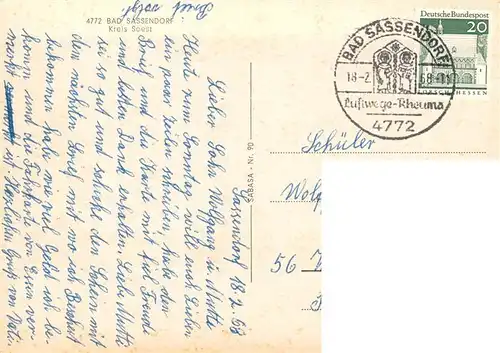 4772 BAD SASSENDORF
Kreis Soest
Sassendorf 18.2.68
Lieber Sohn Wolfgang u. Mutti
Heute zum Sonntag will euch Lieben
ein paar Zeilen schreiben, habe den
Brief und die Karte mit viel Freude
und besten Dank erhalten. Liebe Mutti
sei so gut und schicke den Schein mit
den nächsten Brief mit wo ich Bescheid
bekommen habe wie viel Geld ich be-
komme und die Fahrkart von Essen ver-
merkt ist. Herzlichen Gruß von Vati.
SABASA - Nr. 90
BAD SASSENDORF
18-2.68-11
Luftwege-Rheuma
4772
Deutsche Bundespost
20
LORSCH/HESSEN
Schüler
56